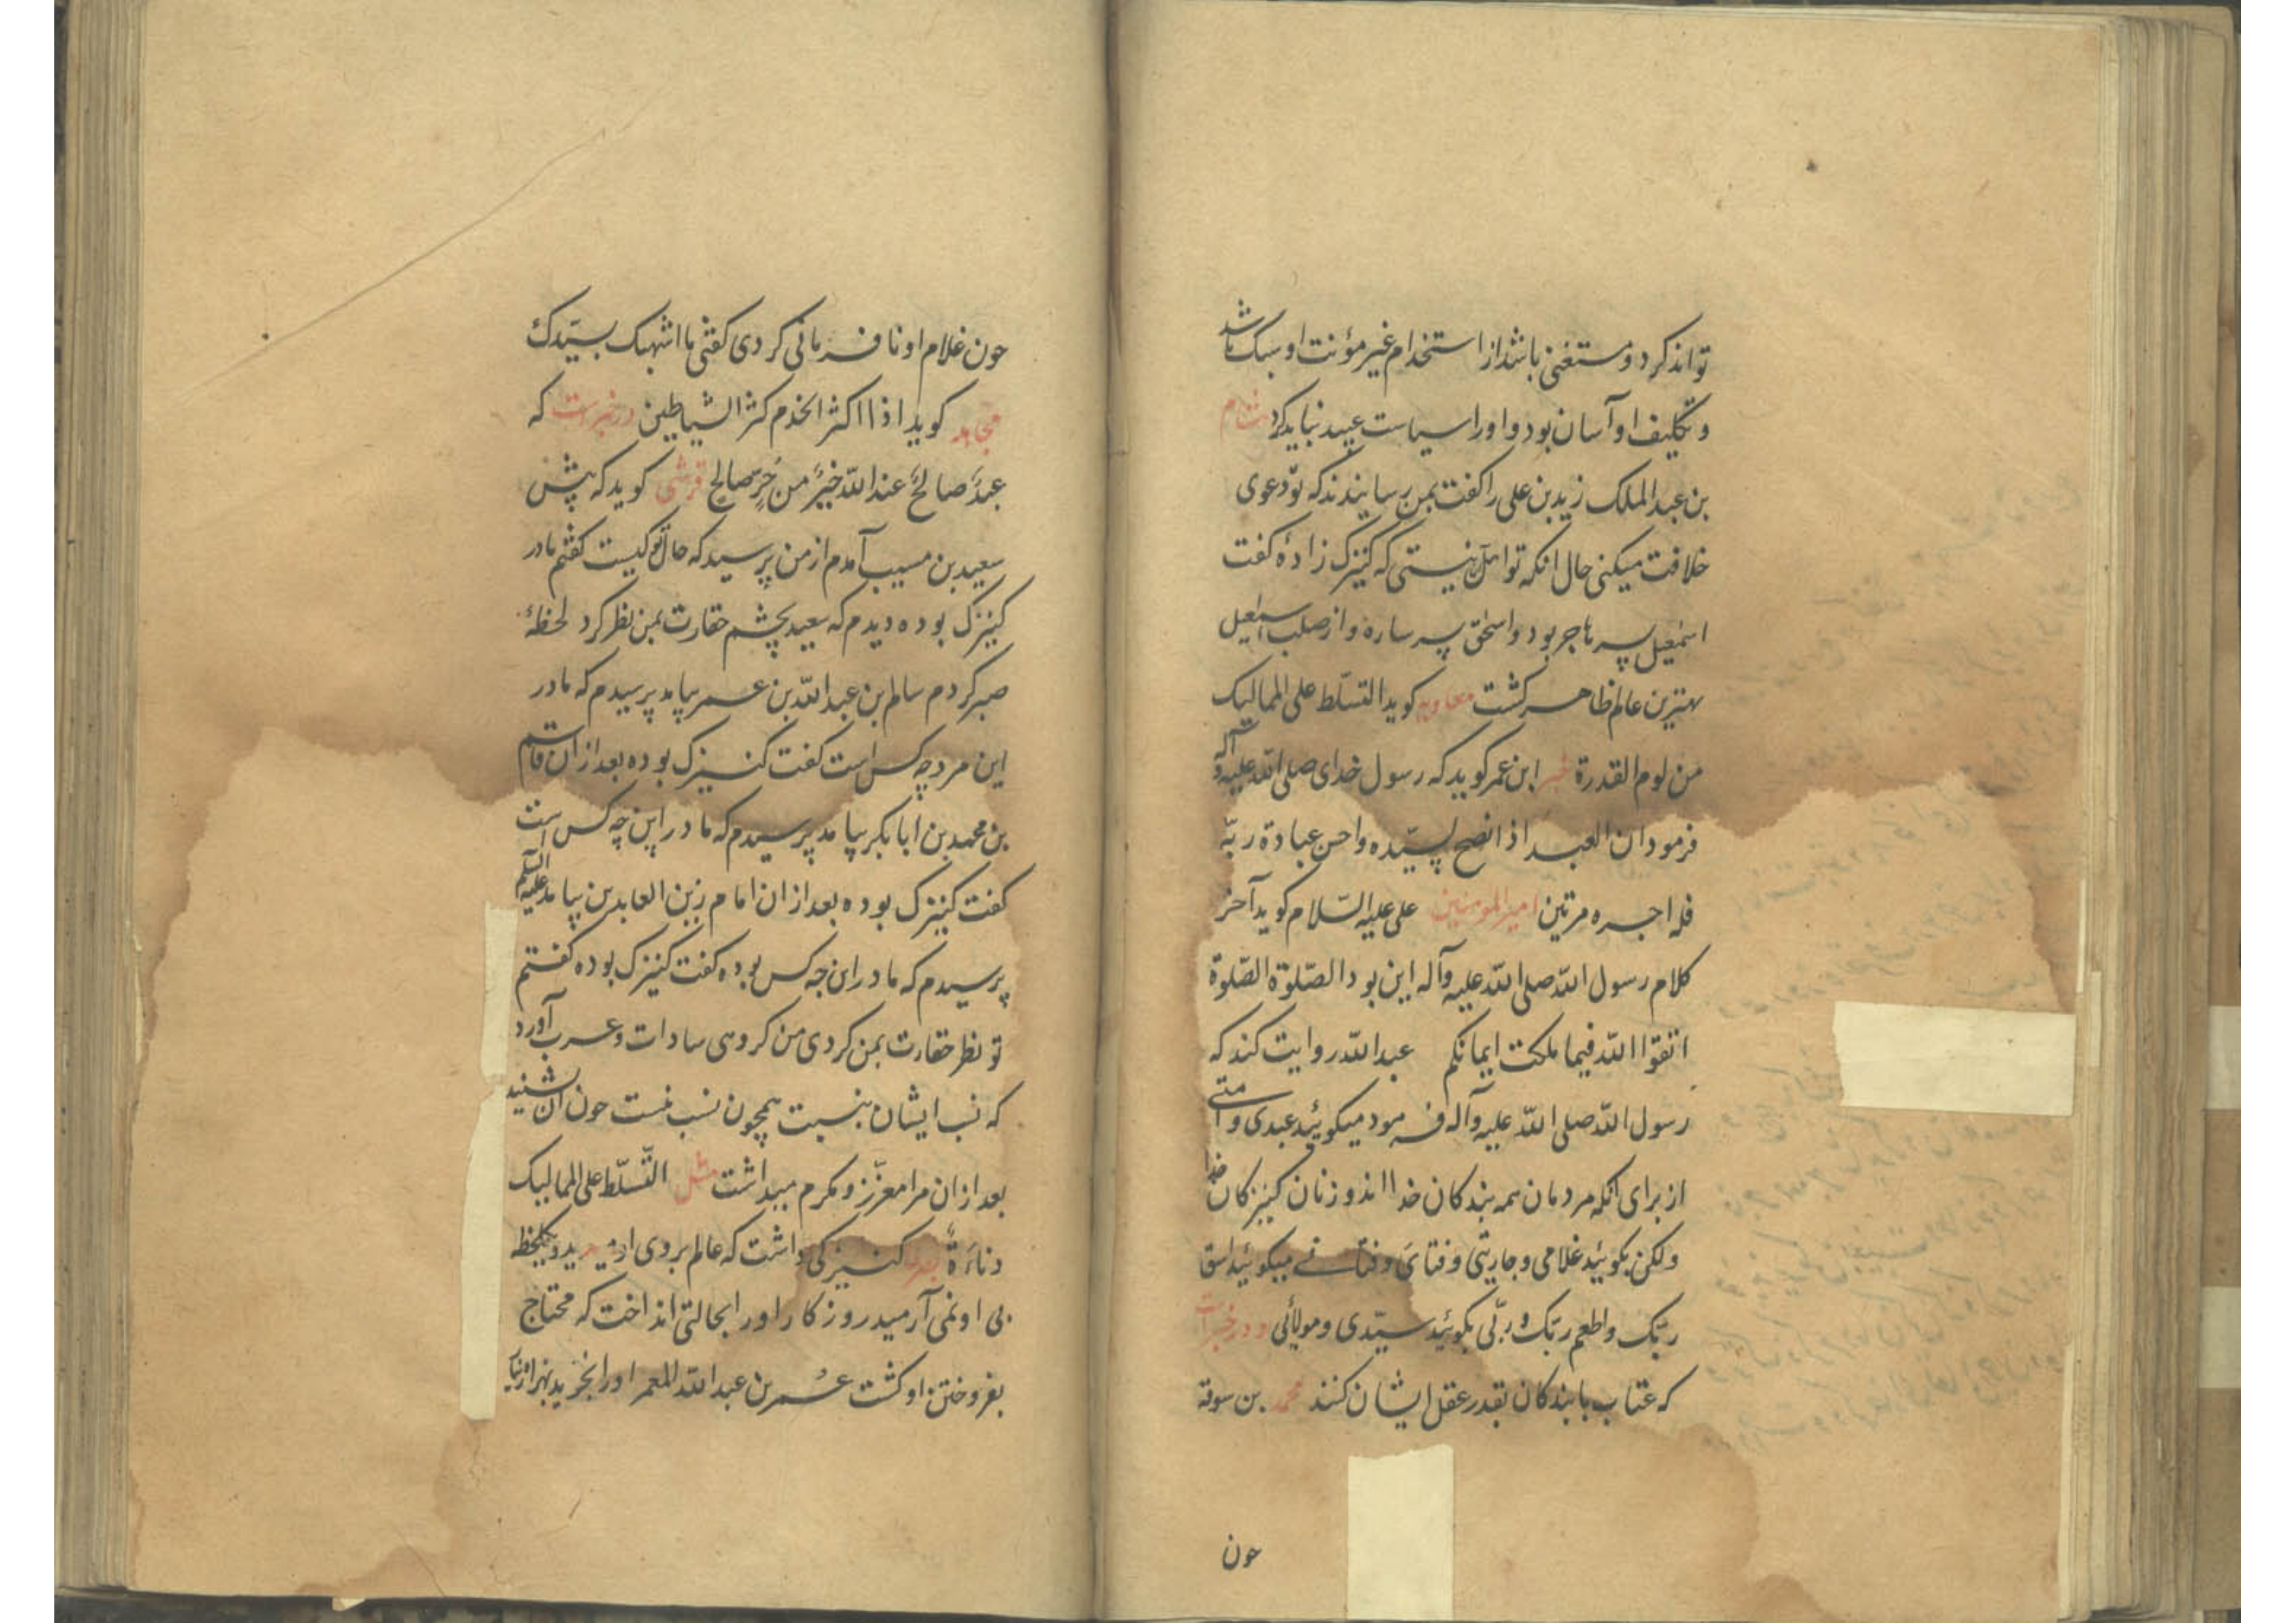 تواند کرد و مستغنی باشد از استخدام غیر مؤنت او سبک باشد
و تکلیف او آسان بود و اورا سیاست عبید نباید کرد هشام
بن عبد الملک زید بن علی را کفت بمن رسانیدند که تو دعوی
خلافت میکنی حال انکه تو اهل آن نیستی که کنیزک زادۀ کفت
اسمٰعیل پسر هاجر بود و اسحٰق پسر ساره و از صلب اسمٰعیل
بهترین عالم ظاهر کشت معاویه کوید التسلّط علی الممالیک
من لوم القدرة خبر ابن عمر کوید که رسول خدای صلی الله علیه و آله
فرمود ان العبد اذا نصح لسیّده و احسن عبادة ربّه
فله اجره مرتین امیر المومنین علی علیه السّلام کوید آخر
کلام رسول الله صلی الله علیه وآله این بود الصّلوة الصّلوة
اتقوا الله فیما ملکت ایمانکم عبد الله روایت کند که
رسول الله صلی الله علیه وآله فرمود میکوئید عبدی و امتی
از برای انکه مردمان همه بندکان خدا اند و زنان کنیزکان خدا
ولکن بکوئید غلامی و جاریتی و فتای و فتاتی میکوئید اسق
ربّک واطعم ربّک و ربّی بکوئید سیّدی و مولائی و در خبر است
که عتاب با بندکان بقدر عقل ایشان کنند محمد بن سوقة
حون
حون غلام او نافرمانی کردی کفتی ما اشبهک بسیّدک
مجاهد کوید اذا اکثر الخدم کثر الشیاطین در خبر است که
عبدٌ صالحٌ عند الله خیرٌ من حُرٍّ صالح قرشی کوید که پیش
سعید بن مسیب آمدم از من پرسید که خال تو کیست کفتم مادر
کنیزک بوده دیدم که سعید بچشم حقارت بمن نظر کرد لحظۀ
صبر کردم سالم بن عبد الله بن عمر بیامد پرسیدم که مادر
این مرد چه کس است کفت کنیزک بوده بعد از ان قاسم
بن محمد بن ابابکر بیامد پرسیدم که مادر این چه کس است
کفت کنیزک بوده بعد از ان امام زین العابدین بیامد علیه السلم
پرسیدم که مادر این چه کس بوده کفت کنیزک بوده کفتم
تو نظر حقارت بمن کردی من کروهی سادات و عرب آورد
که نسب ایشان بنسبت همچون نسب منست حون ان شنید
بعد از ان مرا معزّز و مکرم میداشت مثل التّسلّط علی الممالیک
دناءَةٌ کنیزکی داشت که عالم بروی او میدید و یکلحظه
بی او نمی آرمید روزکار اورا بحالتی انداخت که محتاج
بفروختن او کشت عُمر بن عبد الله المعمر اورا بخرید بهزار